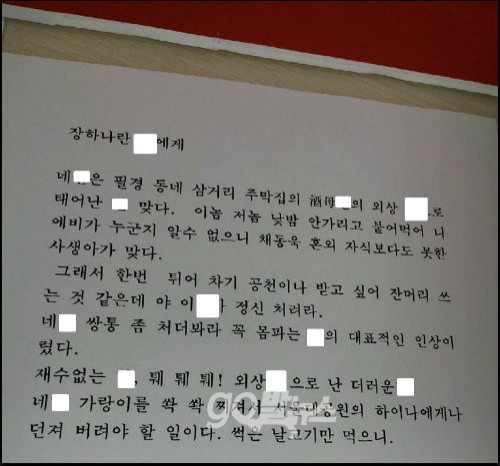 장하나란 에게
네 은 필경 동네 삼거리 주막집의 酒母 의 외상 로
태어난 맞다. 이놈 저놈 낮밤 안가리고 붙어먹어 니
에비가 누군지 알수 없으니 채동욱 혼외 자식보다도 못한
사생아가 맞다.
그래서 한번 튀어 차기 공천이나 받고 싶어 잔머리 쓰
는 것 같은데 야 이 정신 처려라.
네 쌍통 좀 처더봐라 꼭 몸파는 의 대표적인 인상이
렸다.
재수없는 , 퉤 퉤 퉤! 외상 으로 난 더러운
네 가랑이를 쏵 쏵 찌져서 서울대공원의 하이나에게나
던져 버려야 할 일이다. 썩은 날고기만 먹으니.
go발뉴스